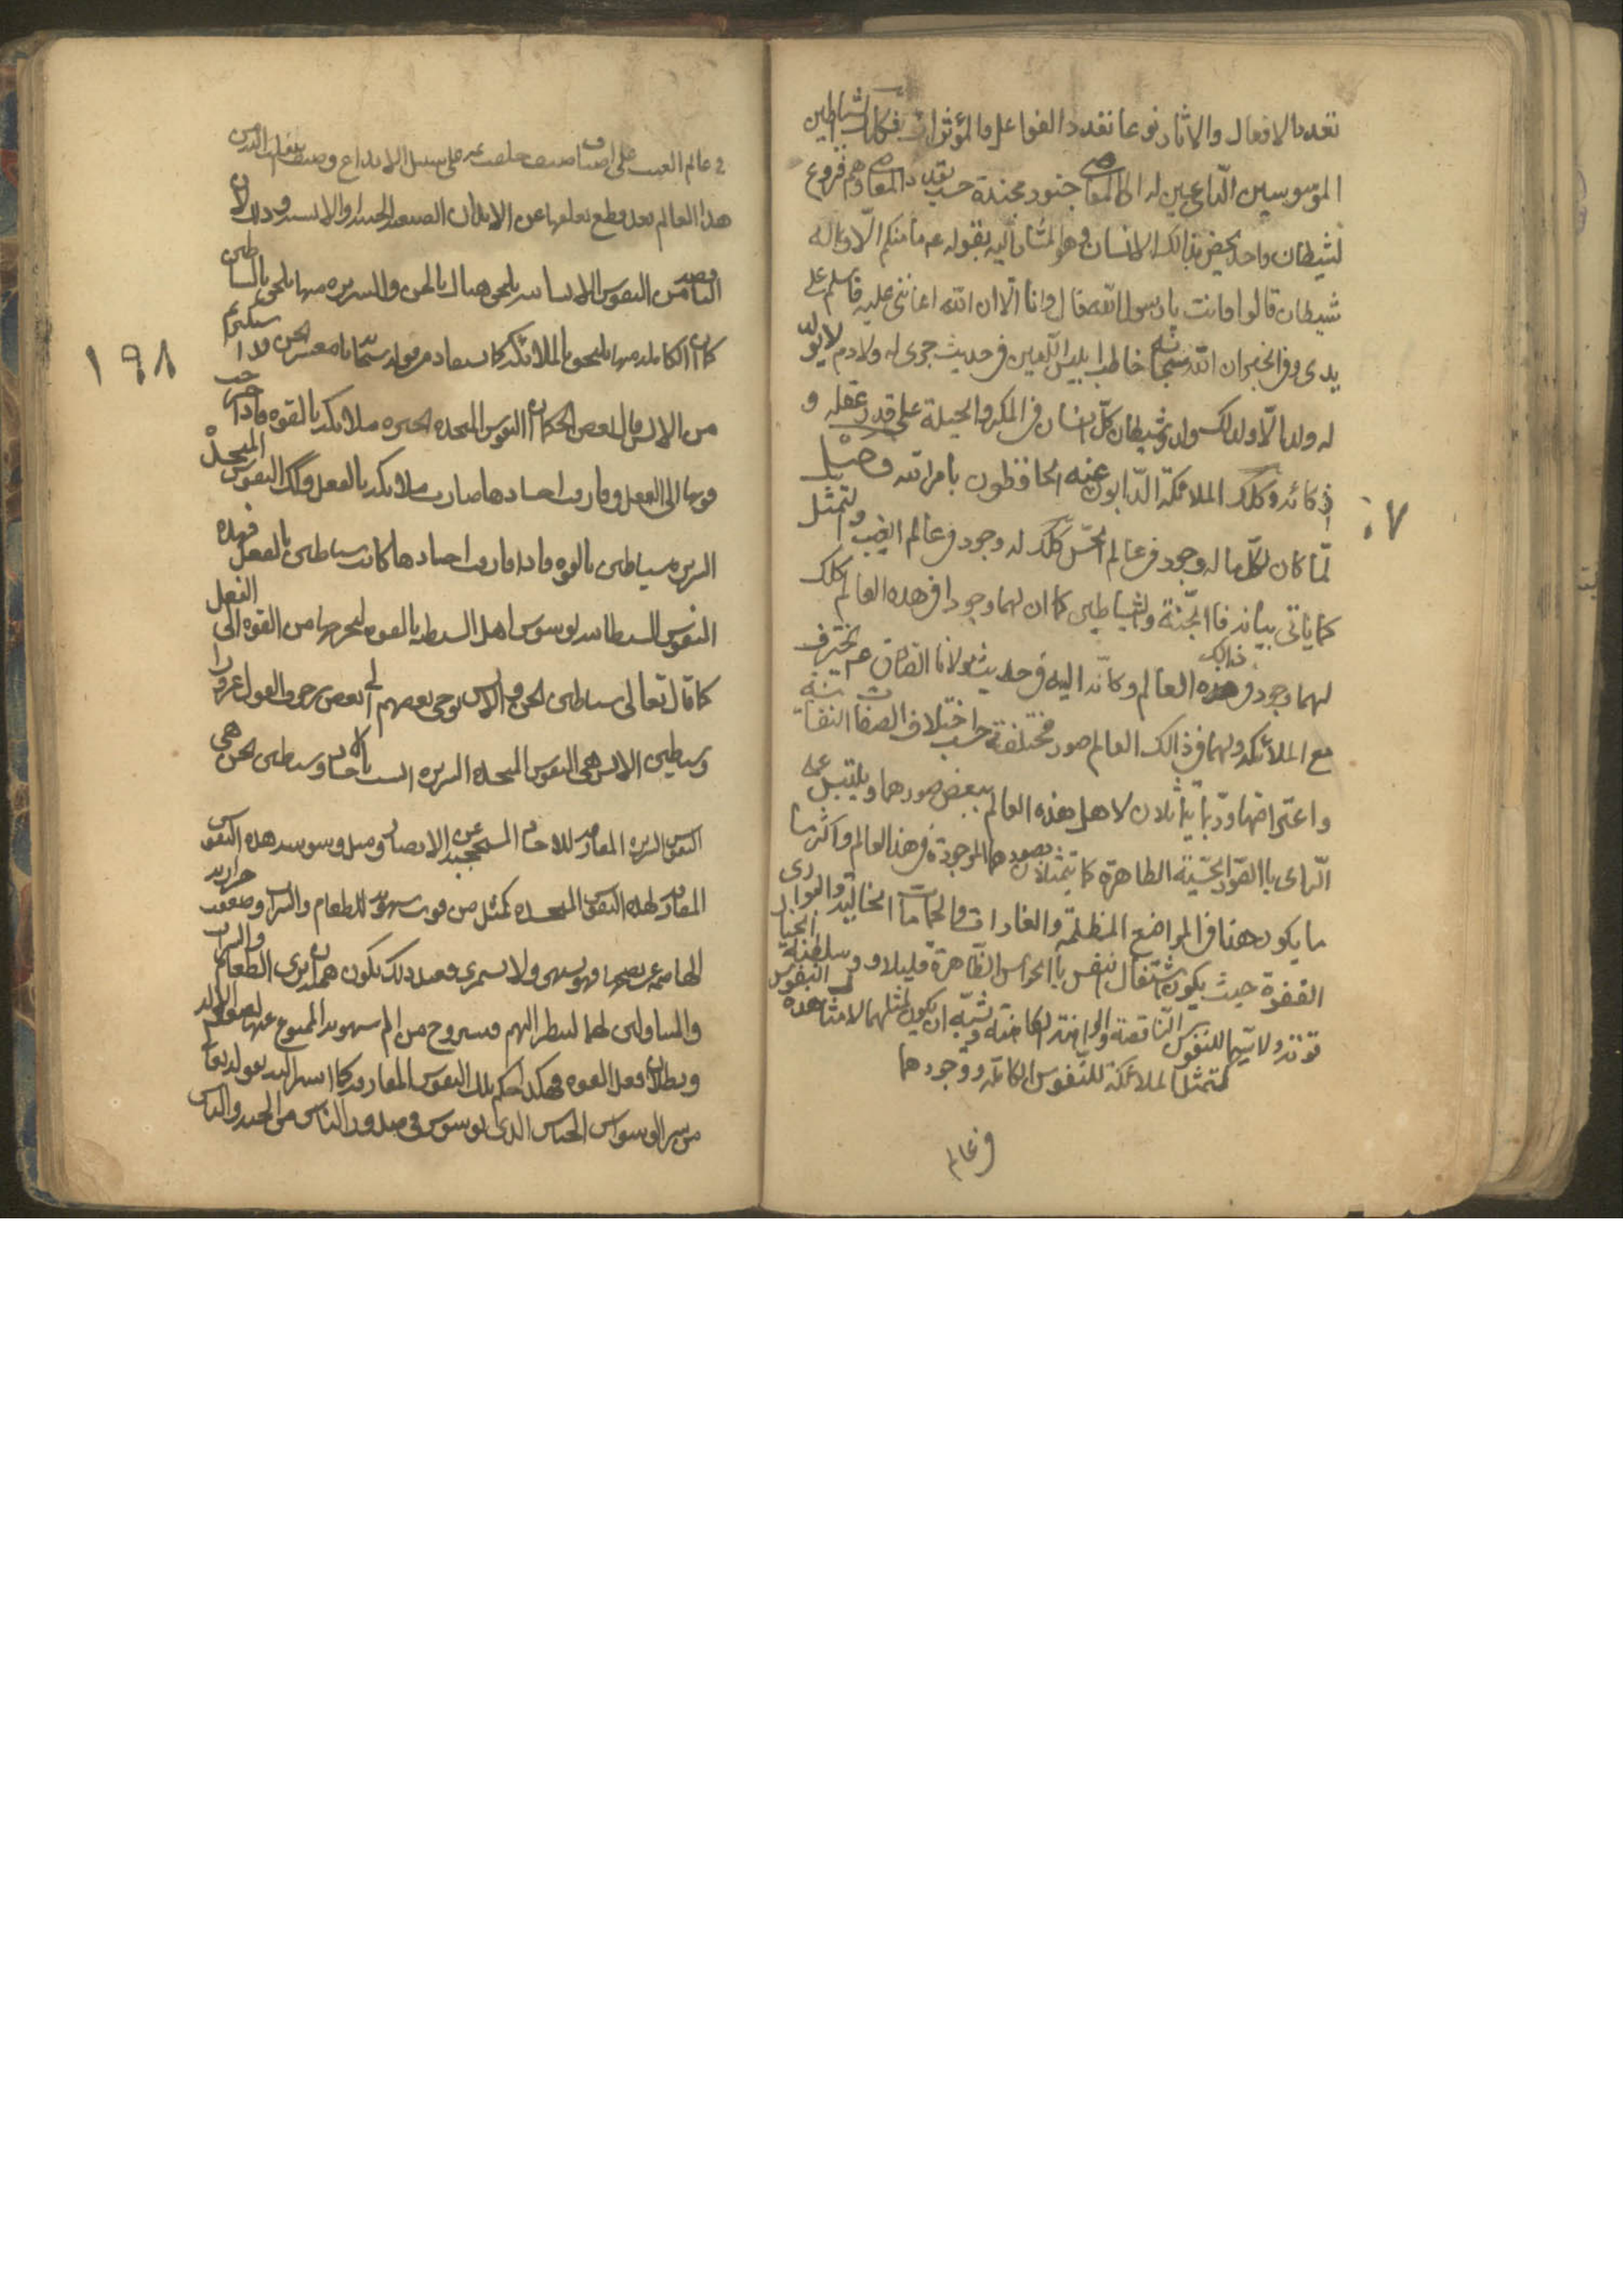 تعدد الافعال والاثار نوعا تعدد الفواعل والمؤثرات فكان الشياطين
الموسوسين الداعين له الى المعاصى جنود مجندة حسب تعدد المعاصى وهم فروع
لشيطان واحد يخص بذالك الانسان وهو المشار اليه بقوله عم ما منكم الا وله
شيطان قالوا وانت يا رسول الله قال وانا الا ان الله اعاننى عليه فاسلم على
يدى وفى الخبر ان الله سبحانه خاطب ابليس اللعين فى حديث جرى له ولادم لا يولد
له ولد الا ولد لك ولد وشيطان كل انسان فى المكر والحيلة على قدر عقله و
ذكائه وكذلك الملائكة الذابون عنه الحافظون بامر الله وصل
لما كان لكل ما له وجود فى عالم الحس كذلك له وجود فى عالم الغيب والتمثل
كما ياتى بيانه فالجنة والشياطين كما ان لهما وجودا فى هذه العالم كذلك
لهما وجود فى ذالك العالم وكانه اليه فى حديث مولانا الصادق عم
مع الملائكة ولهما فى ذالك العالم صور مختلفة حسب اختلاف الصفات النفسانية
واعتراضها وربما يتمثلان لاهل هذه العالم ببعض صورهما ويلتبس على
الرائى باالقوة الحسية الظاهرة كما يتمثلان بصورهما الموجودة فى هذا العالم واكثر ما
ما يكون هنا فى المواضع المظلمة والغارات والحمامات الخالية والبوادى
القفرة حيث يكون اشتغال النفس باالحواس الظاهرة قليلا وسلطنة الخيال
قوته ولا سيما للنفوس الناقصة ويشبه ان يكون تمثلهما لامثال هذه النفوس
كتمثل الملائكة للنفوس الكاملة ووجودهما
فى عالم
١٩٨
فى عالم الغيب على اصناف صنف خلقت على سبيل الابداع وصنف
هذا العالم بعد قطع تعلقها عن الابدان الجنية والانسية وذلك لان
الناقص من النفوس الانسانية يلحق هناك بالجن والشريرة منها يلحق بالشياطين
كما ان الكاملة منها يلحق بالملائكة كما يستفاد من قوله سبحانه يا معشر الجن قد استكثرتم
من الانس قال بعض الحكماء ان النفوس المتجسدة الخيرة ملائكة بالقوة فاذا خرجت
قوتها الى الفعل وفارقت اجسادها صارت ملائكة بالفعل وكذلك النفوس المتجسدة
الشريرة شياطين بالقوة فاذا فارقت اجسادها كانت شياطين بالفعل فهذه
النفوس الشيطانية توسوس اهل الشيطنة بالقوة ليخرجها من القوة الى الفعل
كما قال تعالى شياطين الجن والانس يوحى بعضهم الى بعض زخرف القول غرورا
وشياطين الانس هى النفوس المتجسدة الشريرة انست بالاجساد وشياطين الجن هى
النفوس الشريرة المفارقة للاجسام المحتجبة عن الابصار ومثل وسوسة هذه النفوس
المفارقة لهذه النفوس المتجسدة كمثل من قويت شهوته للطعام والشراب وضعفت حرارته
الهاضمة عن نضجها فهو يشتهى ولا يستمرئ فعند ذلك تكون همته ان يرى الطعام والشراب
والمتناولين لها لينظر اليهم فيستروح من الم شهوته الممنوع عنها
وبطلان فعل القوة فهكذا حكم تلك النفوس المفارقة كما اشير اليه بقوله تعالى
من شر الوسواس الخناس الذى يوسوس فى صدور الناس من الجنة والناس